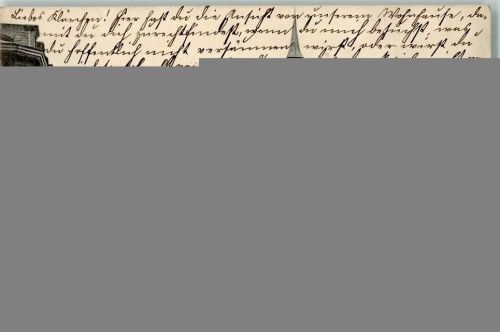 Liebes Klärchen! Hier hast du die Ansicht von unserem Wohnhause, da-
mit du dich zurechtfindest, wenn du mich besuchst, was
du hoffentlich nicht versäumen wirst, oder wirst du